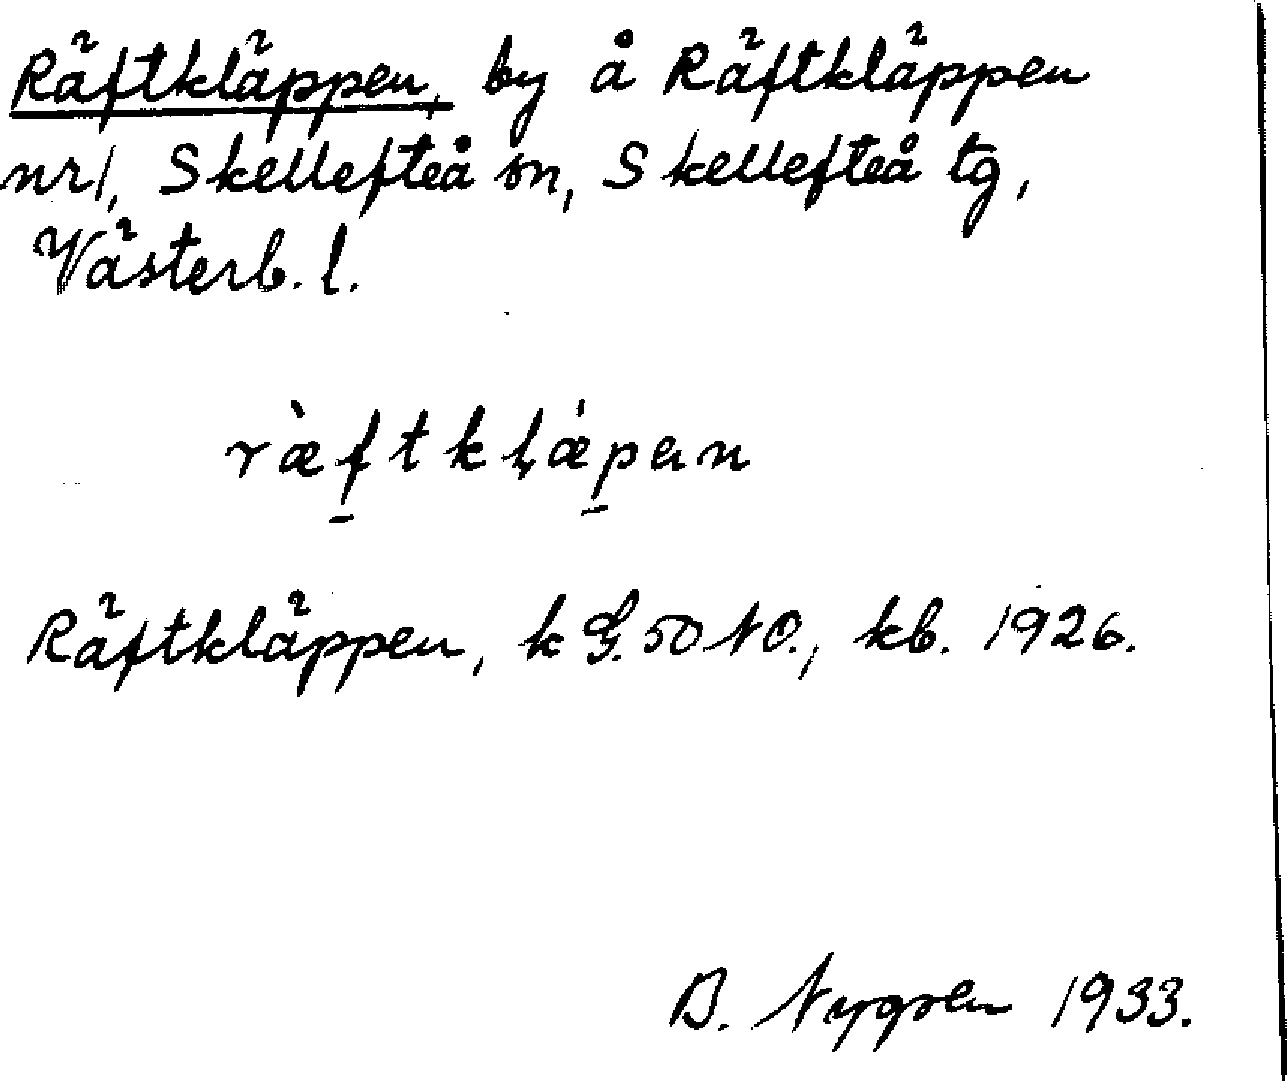 Räftkläppen, by å Räftkläppen
nr 1, Skellefteå sn, Skellefteå tg,
Västerb. l.
ræ̀f̲tkḷǽp̲ən
Räftkläppen, k G. 50 NO., kb. 1926.
B. Nygren 1933.